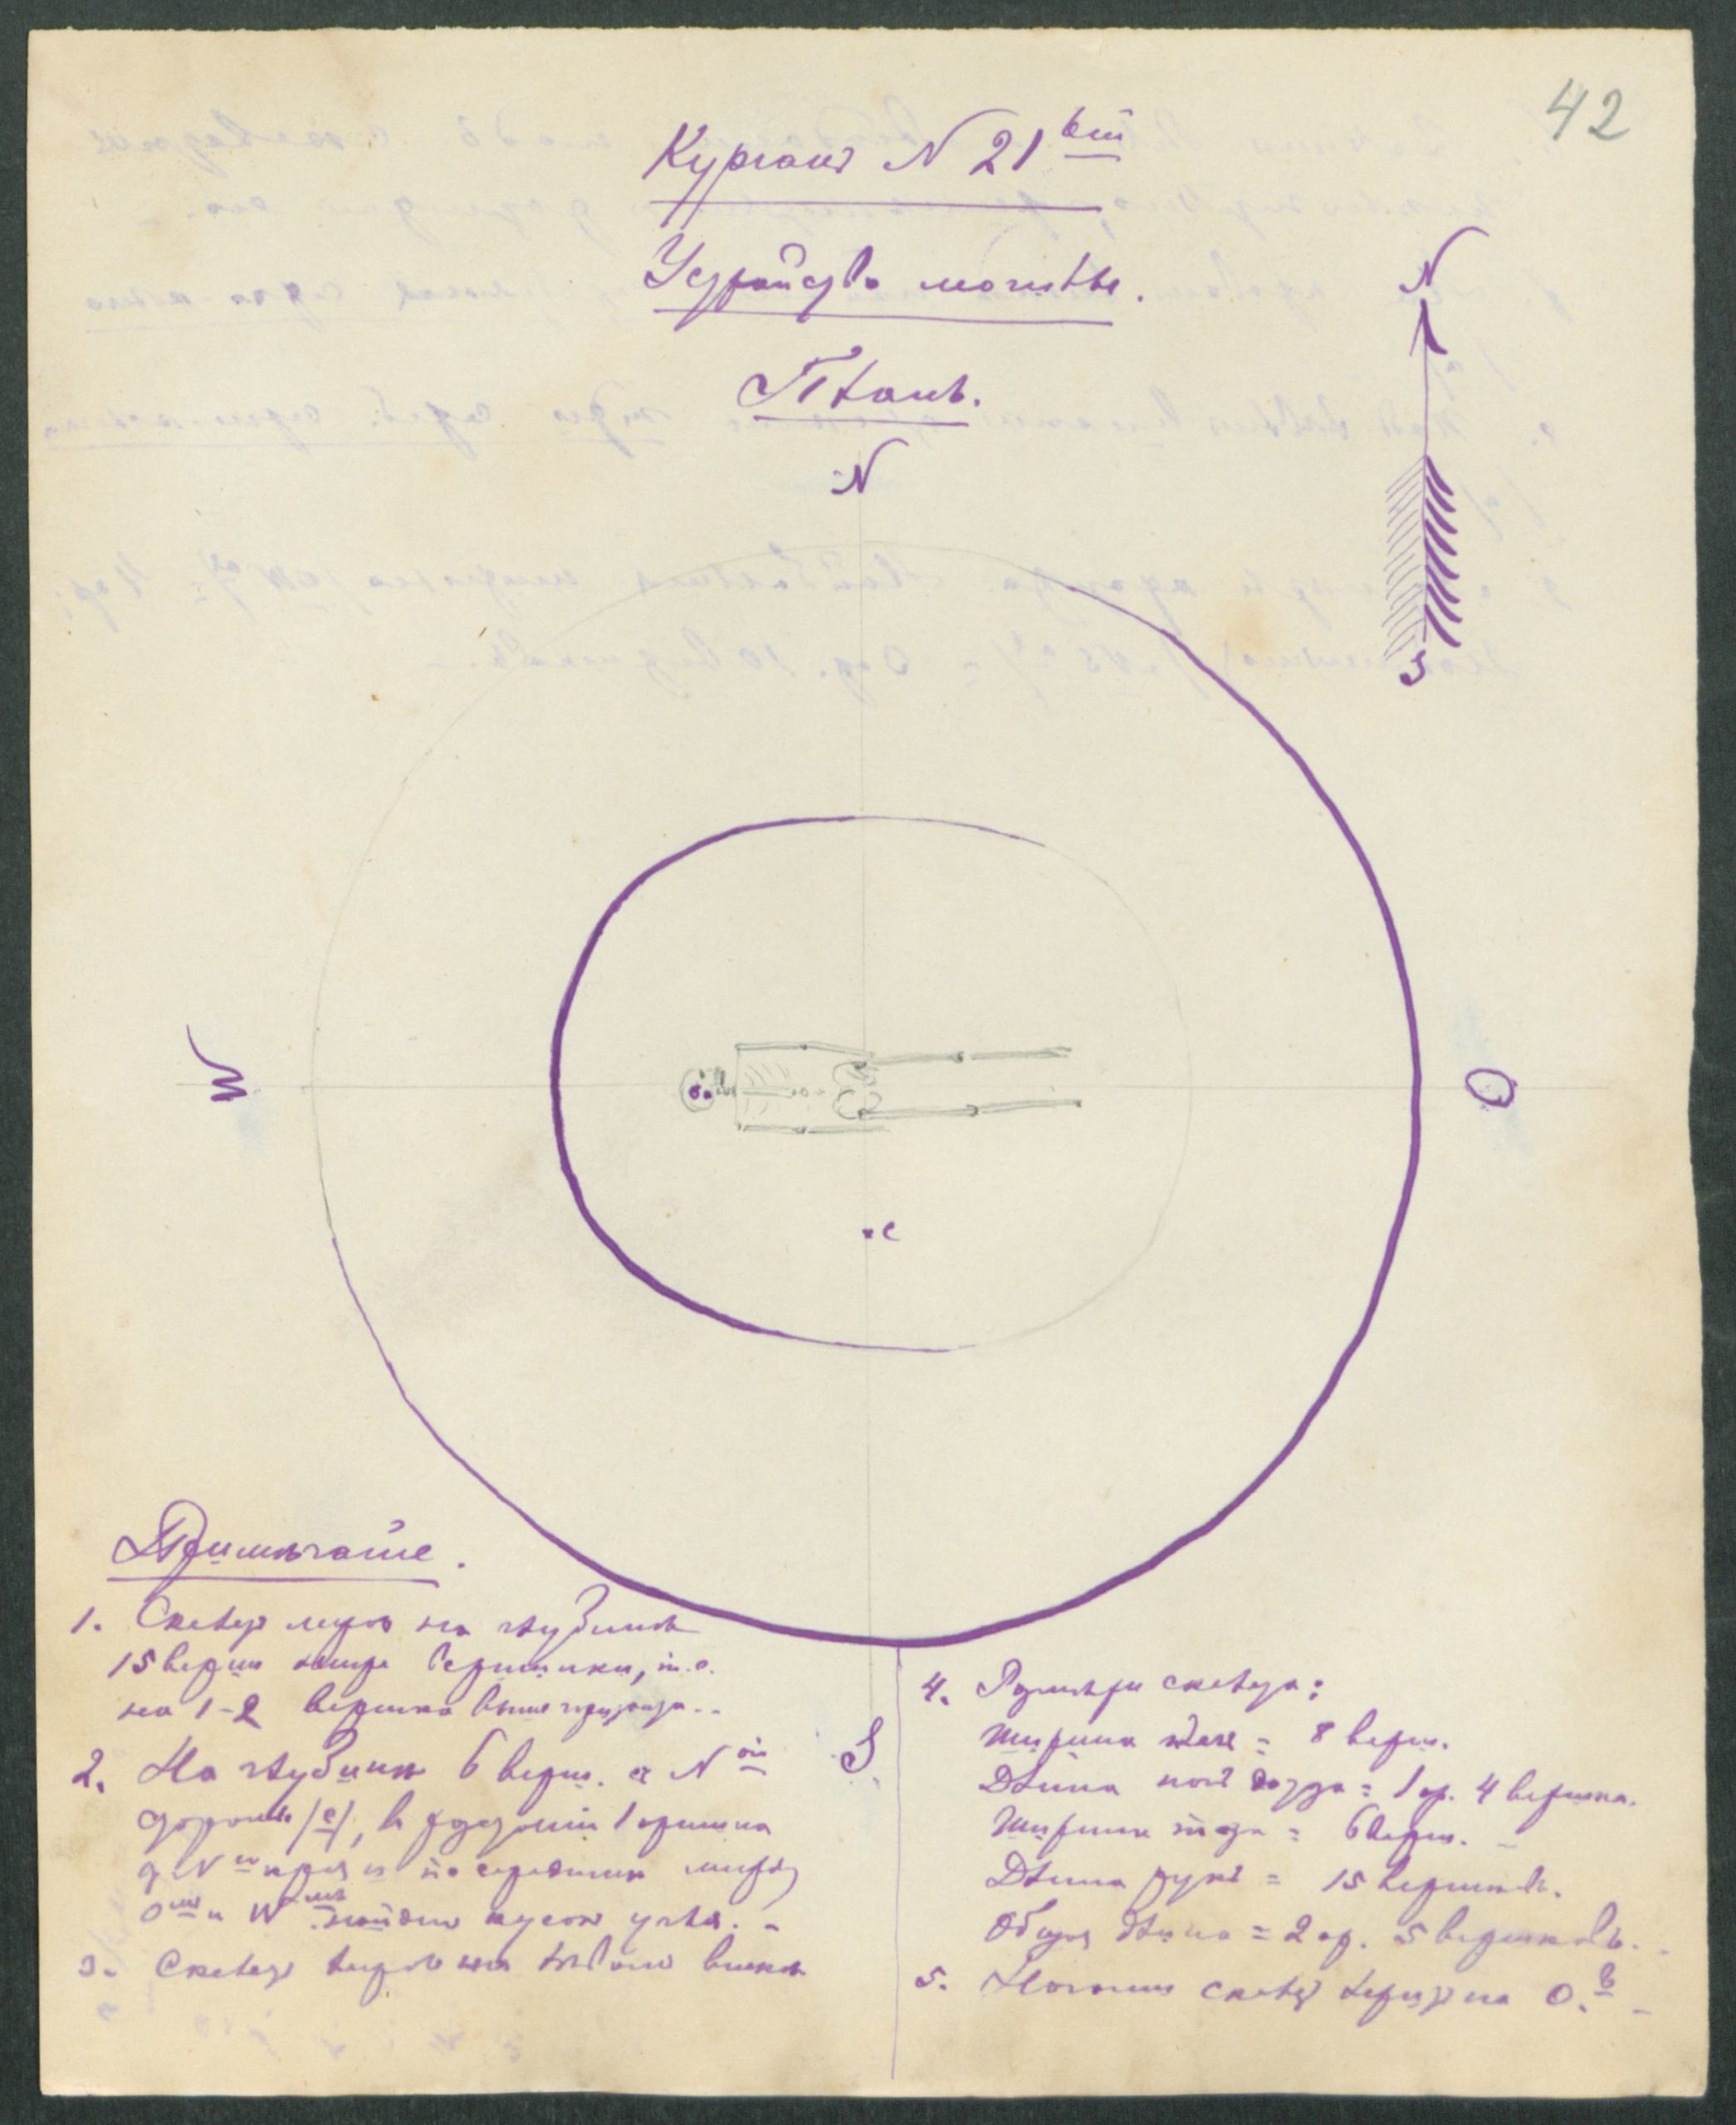 42
Курганъ N 21ый
Устройство могилы.
Планъ.
N
N
S
W
O
с
Примѣчаніе.
1. Скелетъ лежалъ на глубинѣ
15 вершк. ниже верхушки, т.е.
на 1-2 вершка выше горизонта.
2. На глубинѣ 6 верш. съ Nой
стороны /с/, въ разстояніи 1 аршина
отъ Nго края и по серединѣ между
Oмъ и Wмъ найденъ кусокъ угля. -
3. Скелетъ лежалъ на лѣвомъ вискѣ
S
4. Размѣры скелета:
Ширина плеч = 8 верш.
Длина ногъ до таза = 1 ар. 4 вершка.
Ширина таза = 6 верш. -
Длина рукъ = 15 вершковъ.
Общая длина = 2 ар. 5 вершковъ. -
5. Ногами скелетъ лежитъ на O.в -